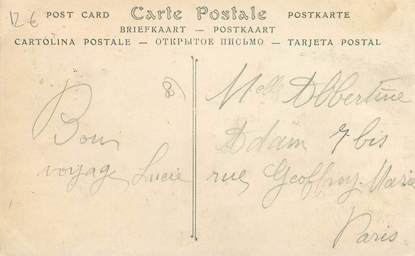 12 €
POST CARD Carte Postale POSTKARTE
BRIEFKAART — POSTKAART
CARTOLINA POSTALE — ОТКРЫТОЕ ПИСЬМО — TARJETA POSTAL
Bon
voyage Lucie
Melle Albertine
Adam 7 bis
rue Geoffroy-Marie
Paris